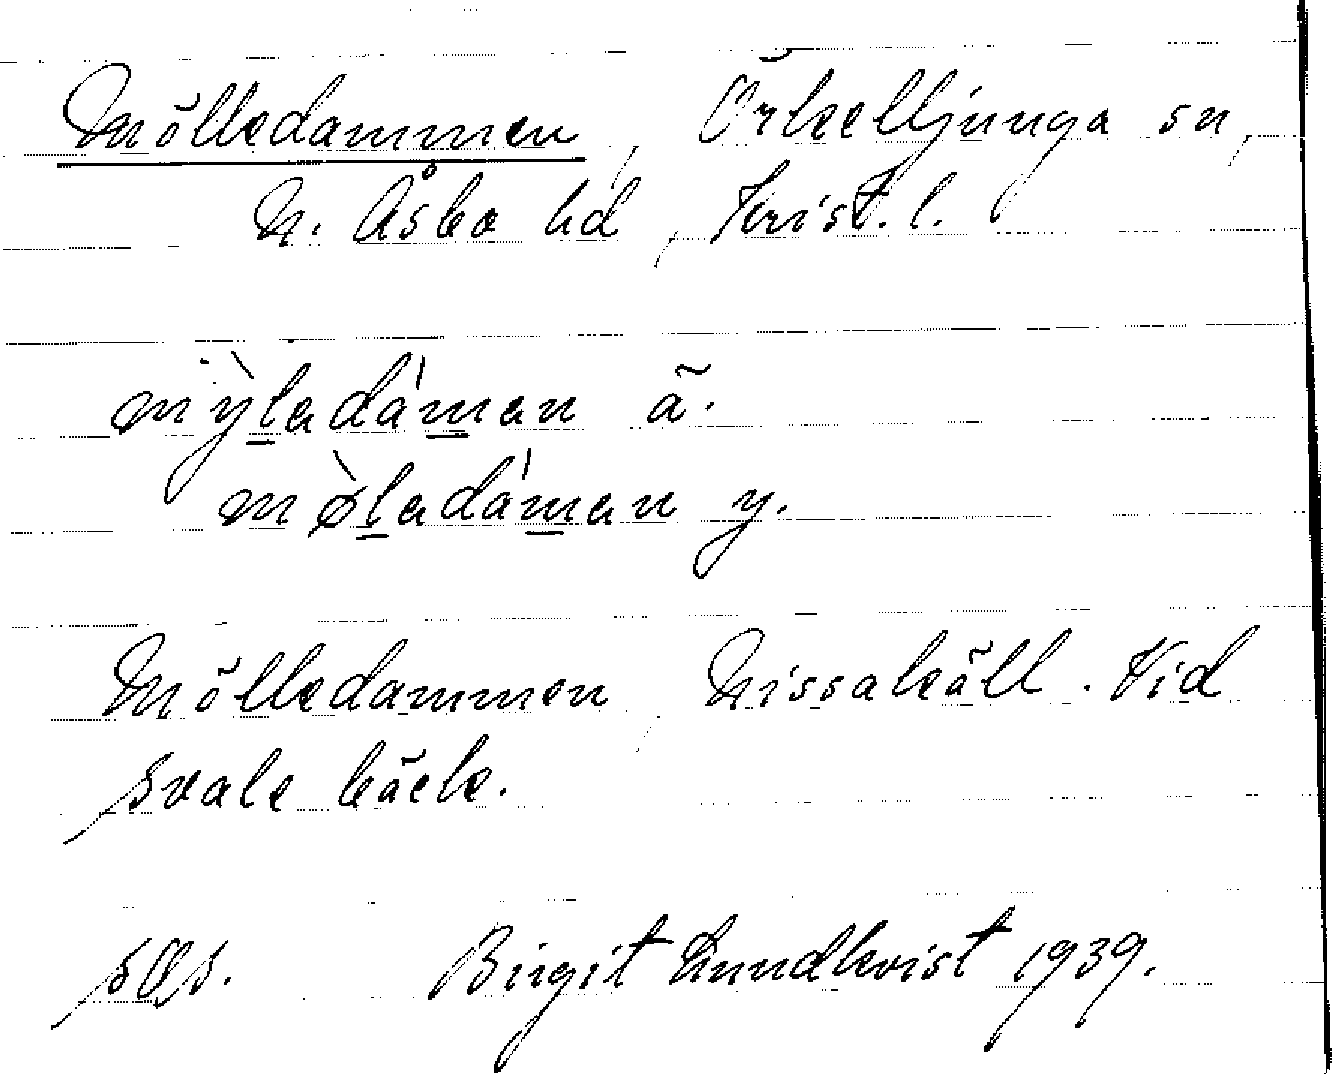 Mölledammen, Örkelljunga sn,
N. Åsbo hd, Krist. l.
mỳladáman ä.
mø̀ladáman y.
Mölledammen, Nissakäll. Vid
svale bäck.
sǾs. Birgit Lundkvist 1939.